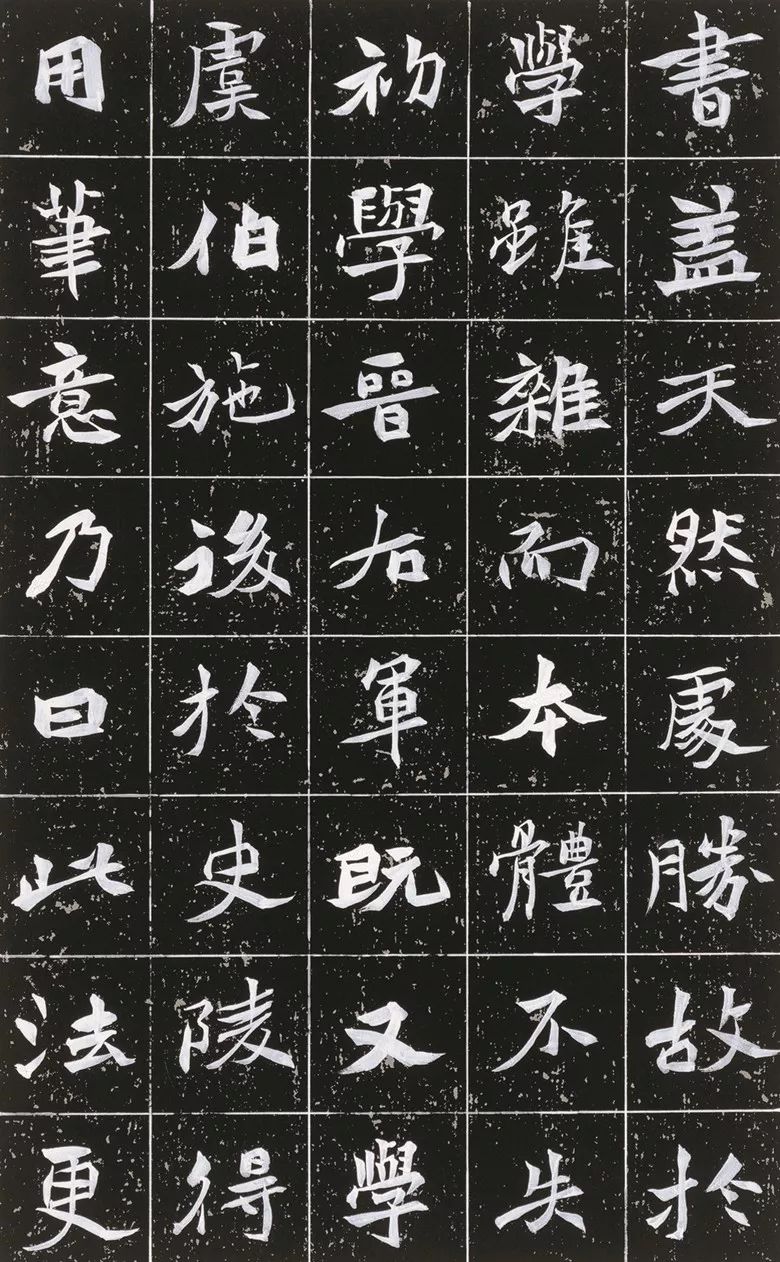 書盖天然處勝故於
學雖雜而本體不失
初學晉右軍既又學
虞伯施後於史陵得
用筆意乃曰此法更